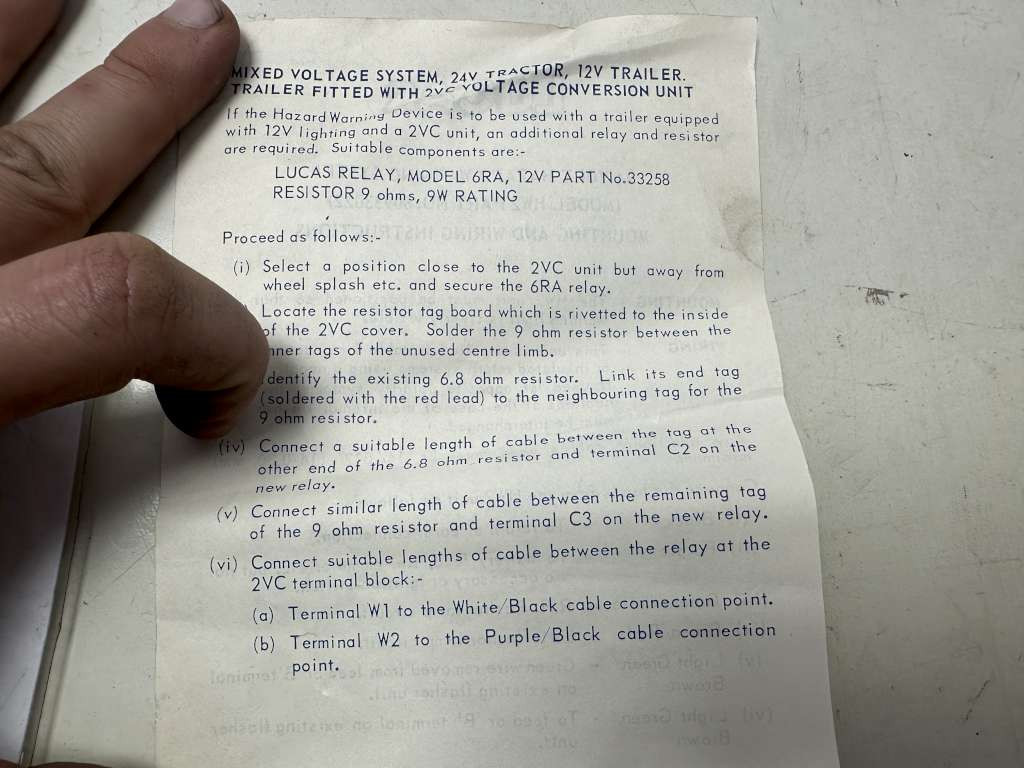 MIXED VOLTAGE SYSTEM, 24V TRACTOR, 12V TRAILER.
TRAILER FITTED WITH 2VC VOLTAGE CONVERSION UNIT
If the Hazard Warning Device is to be used with a trailer equipped
with 12V lighting and a 2VC unit, an additional relay and resistor
are required. Suitable components are:-
LUCAS RELAY, MODEL 6RA, 12V PART No.33258
RESISTOR 9 ohms, 9W RATING
Proceed as follows:-
(i) Select a position close to the 2VC unit but away from
wheel splash etc. and secure the 6RA relay.
Locate the resistor tag board which is rivetted to the inside
of the 2VC cover. Solder the 9 ohm resistor between the
inner tags of the unused centre limb.
Identify the existing 6.8 ohm resistor. Link its end tag
(soldered with the red lead) to the neighbouring tag for the
9 ohm resistor.
(iv) Connect a suitable length of cable between the tag at the
other end of the 6.8 ohm resistor and terminal C2 on the
new relay.
(v) Connect similar length of cable between the remaining tag
of the 9 ohm resistor and terminal C3 on the new relay.
(vi) Connect suitable lengths of cable between the relay at the
2VC terminal block:-
(a) Terminal W1 to the White/Black cable connection point.
(b) Terminal W2 to the Purple/Black cable connection
point.